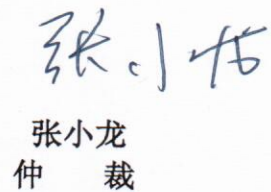 张小龙
张小龙
仲 裁